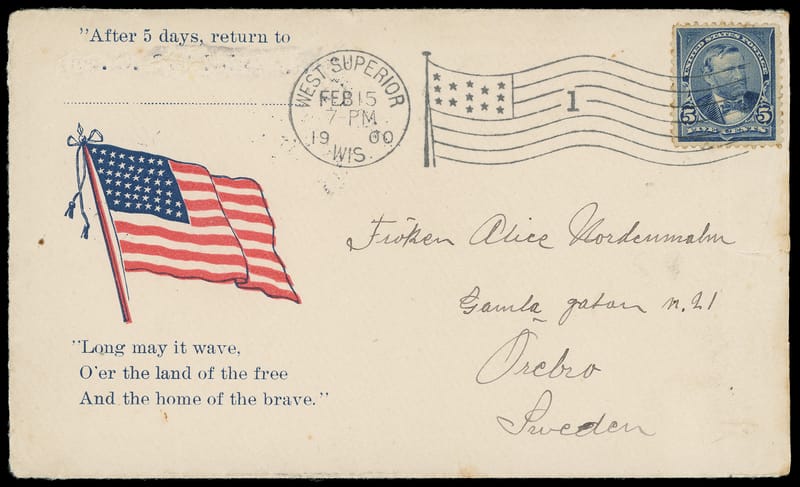 "After 5 days, return to
WEST SUPERIOR
FEB 15
7-PM
1900
WIS.
1
UNITED STATES POSTAGE
5 5
FIVE CENTS
Fröken Alice Nordenmalm
Gamla gatan n. 21
Örebro
Sweden
"Long may it wave,
O'er the land of the free
And the home of the brave."